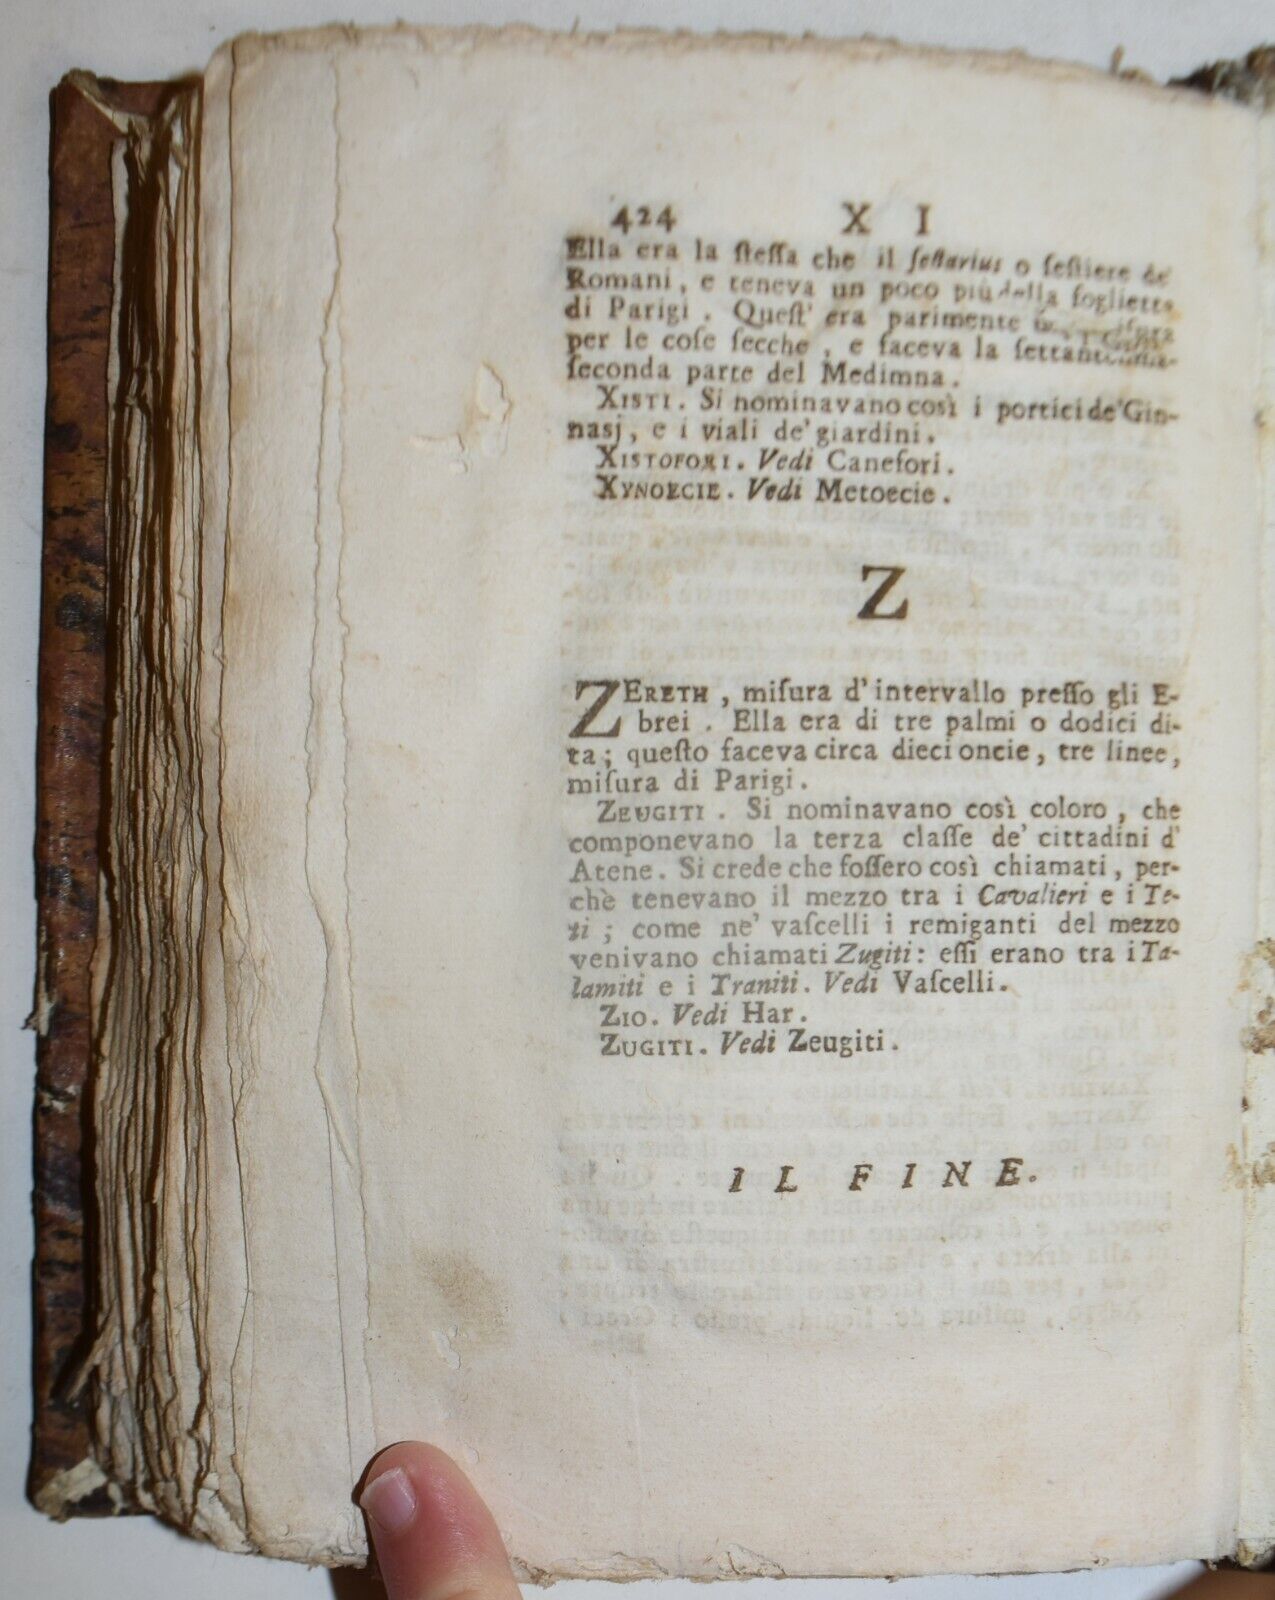 424 X I
Ella era la steſſa che il ſestarius o ſestiere de'
Romani, e teneva un poco più della foglietta
di Parigi. Quest' era parimente
per le coſe ſecche, e faceva la
ſeconda parte del Medimna.
XISTI. Si nominavano così i portici de' Gin-
nasj, e i viali de' giardini.
XISTOFORI. Vedi Canefori.
XYNOECIE. Vedi Metoecie.
Z
ZERETH, miſura d'intervallo preſſo gli E-
brei. Ella era di tre palmi o dodici di-
ta; questo faceva circa dieci oncie, tre linee,
miſura di Parigi.
ZEUGITI. Si nominavano così coloro, che
componevano la terza claſſe de' cittadini d'
Atene. Si crede che foſſero così chiamati, per-
chè tenevano il mezzo tra i Cavalieri e i Te-
ti; come ne' vaſcelli i remiganti del mezzo
venivano chiamati Zugiti: eſſi erano tra i Ta-
lamiti e i Traniti. Vedi Vaſcelli.
ZIO. Vedi Har.
ZUGITI. Vedi Zeugiti.
IL FINE.